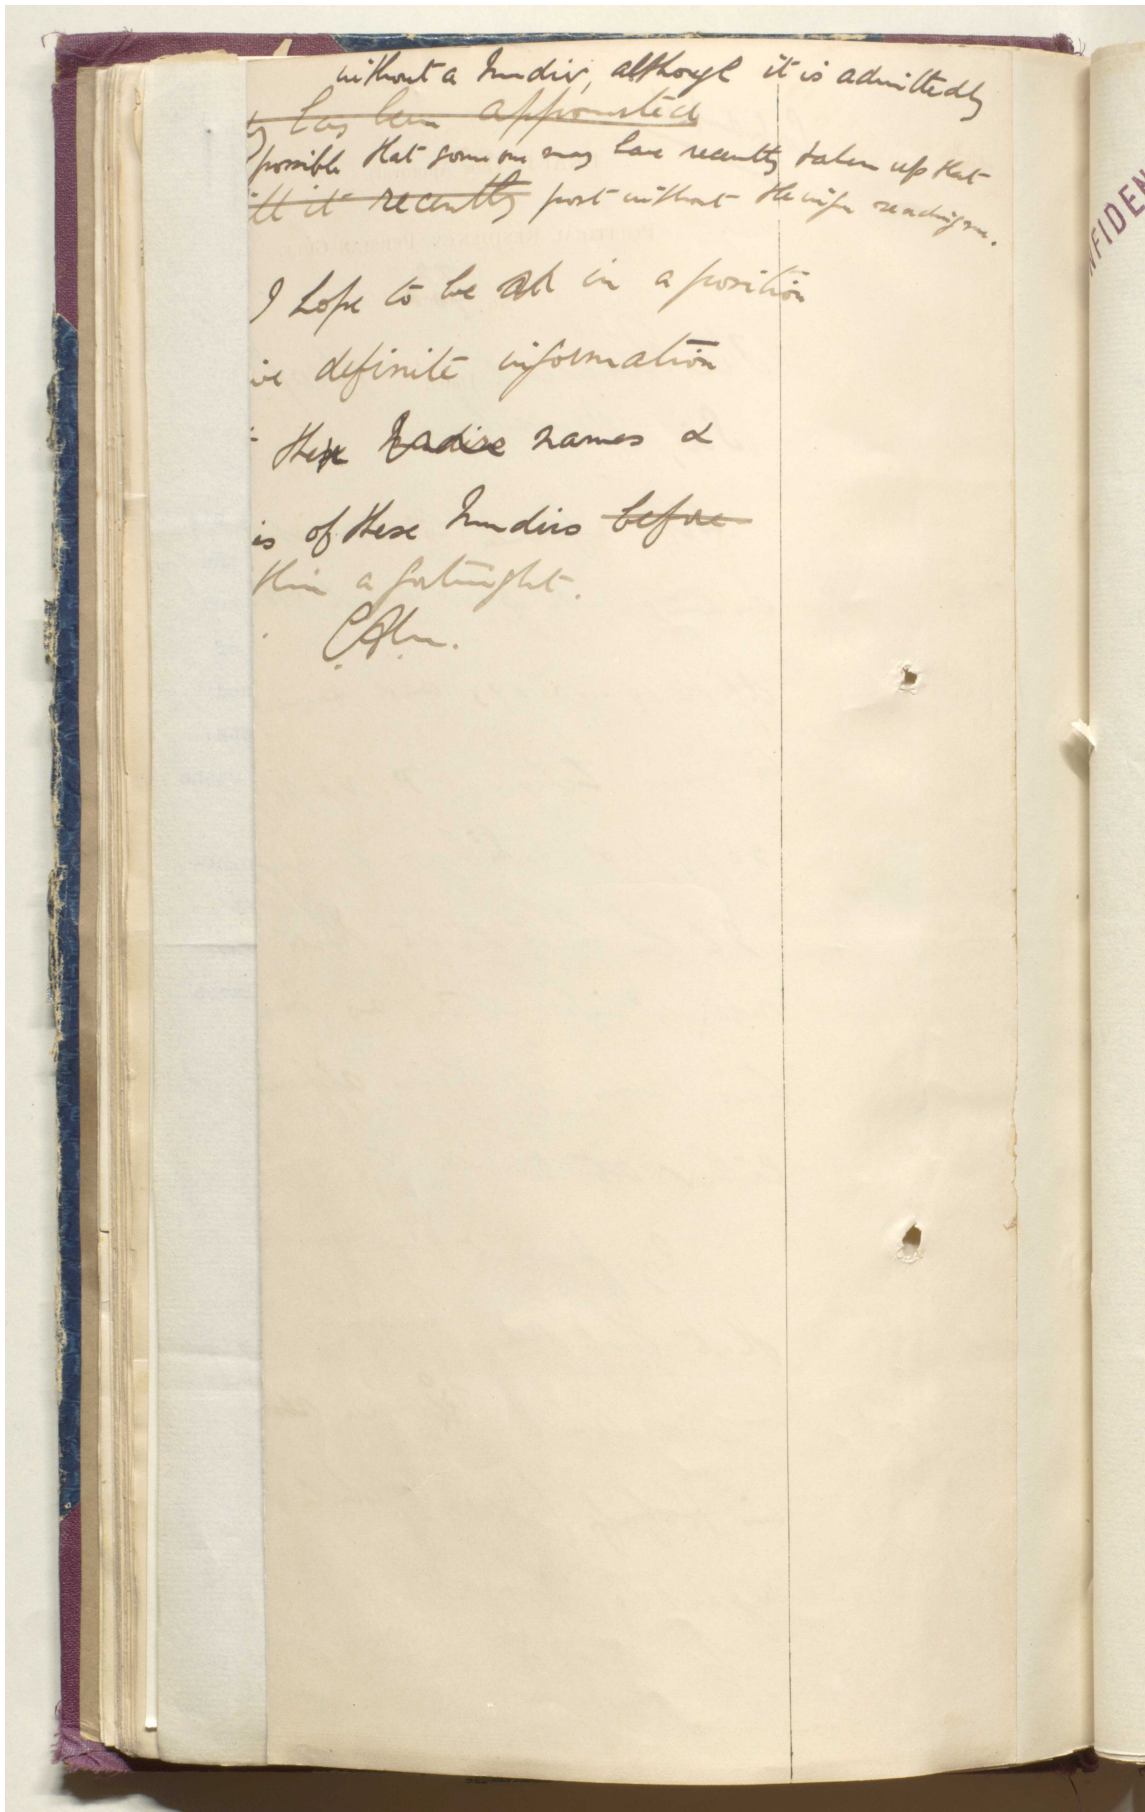 without a Mudir, although it is admittedly
has been appointed
possible that some one may have recently taken up that
it recently post without the news reaching me.
I hope to be in a position
definite information
names &
is of these Mudirs before
thin a fortnight.
NFIDEN